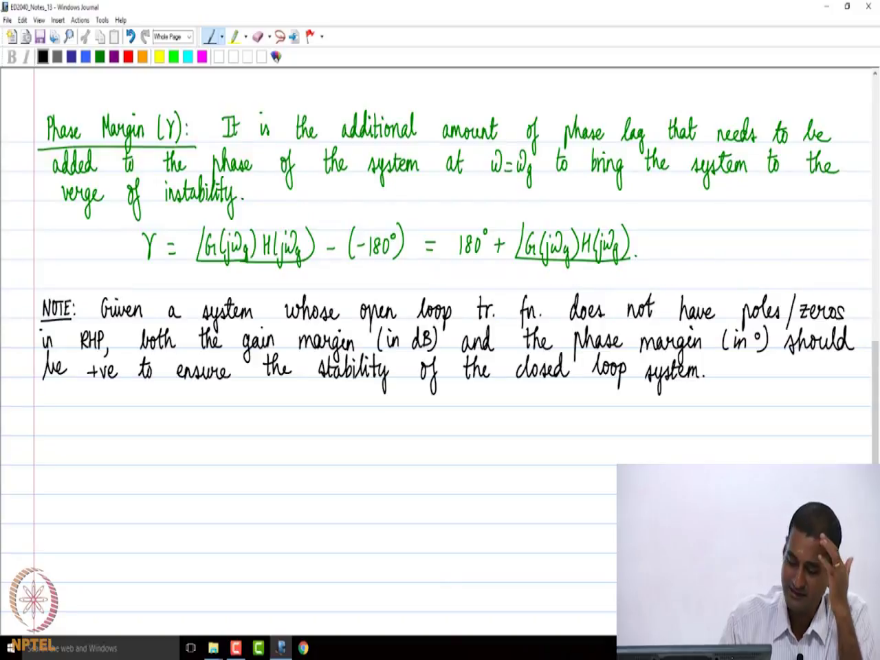 ED2040_Notes_13 - Windows Journal
File Edit View Insert Actions Tools Help
Whole Page
B I
Phase Margin (γ): It is the additional amount of phase lag that needs to be
added to the phase of the system at ω=ωg to bring the system to the
verge of instability.
γ = ∠G(jωg) H(jωg) - (-180°) = 180° + ∠G(jωg)H(jωg).
NOTE: Given a system whose open loop tr. fn. does not have poles/zeros
in RHP, both the gain margin (in dB) and the phase margin (in °) should
be +ve to ensure the stability of the closed loop system.
NPTEL
the web and Windows